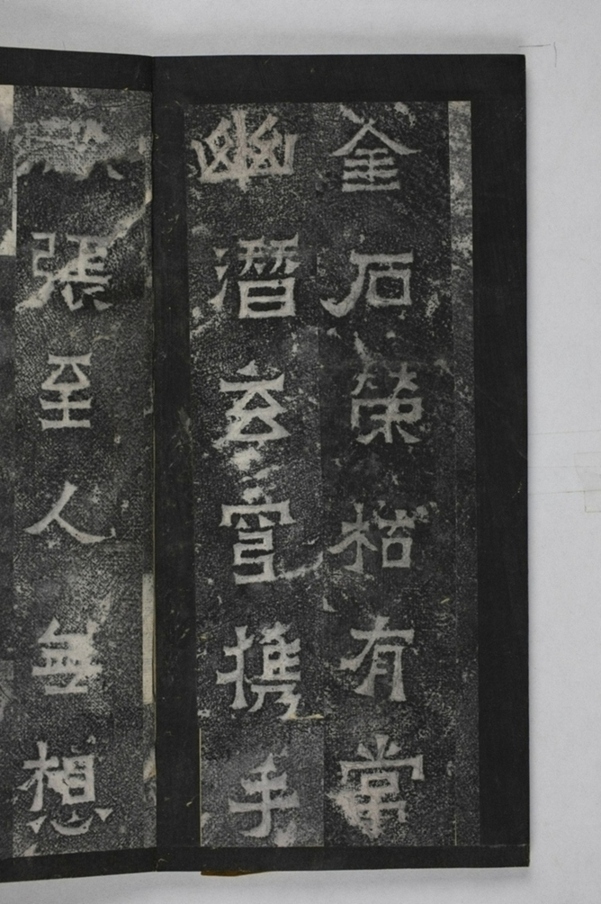 金石榮枯有常
幽潛玄宮攜手
張至人無想